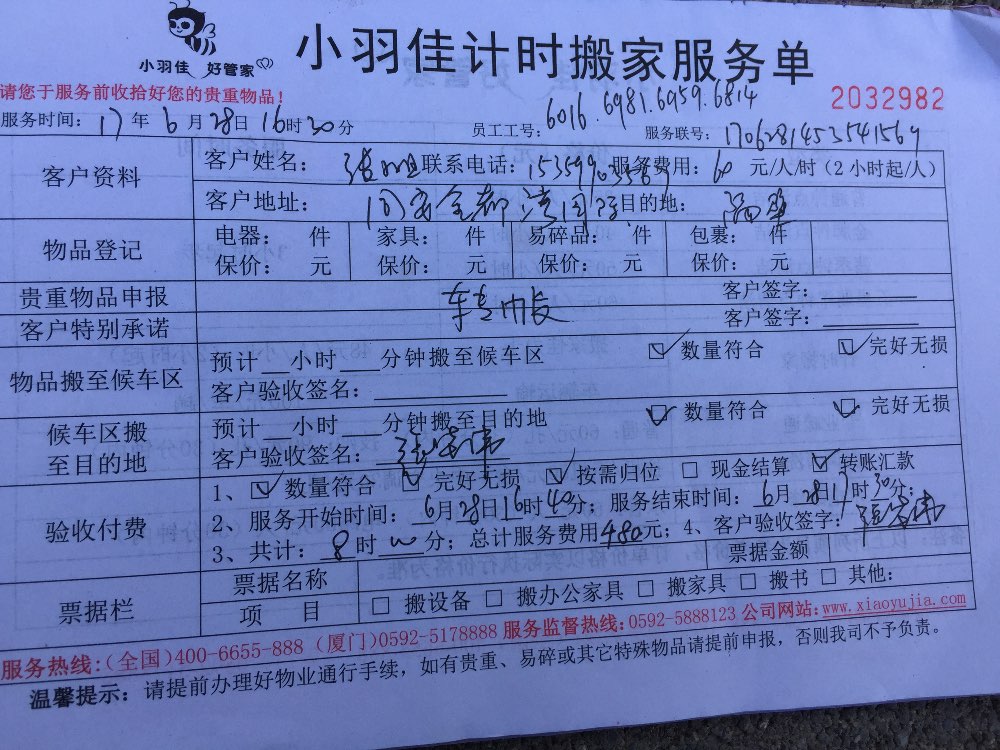 小羽佳 好管家
小羽佳计时搬家服务单
请您于服务前收拾好您的贵重物品!
2032982
服务时间: 17 年 6 月 28 日 16 时 30 分 员工工号: 6016.6981.6959.6814 服务联号: 1706281453541569
客户资料
客户姓名: 联系电话: 服务费用: 60 元/人/时 (2小时起/人)
客户地址: 同安金都湾国际 目的地:
物品登记
电器: 件 家具: 件 易碎品: 件 包裹: 件
保价: 元 保价: 元 保价: 元 保价: 元
贵重物品申报 客户签字:
客户特别承诺 客户签字:
物品搬至候车区
预计 小时 分钟搬至候车区 ☑ 数量符合 ☑ 完好无损
客户验收签名:
候车区搬
至目的地
预计 小时 分钟搬至目的地 ☑ 数量符合 ☑ 完好无损
客户验收签名:
验收付费
1、☑ 数量符合 ☑ 完好无损 ☑ 按需归位 □ 现金结算 ☑ 转账汇款
2、服务开始时间: 6月28日16时40分; 服务结束时间: 6月28日17时30分;
3、共计: 8 时 分; 总计服务费用480元; 4、客户验收签字:
票据栏
票据名称 票据金额
项 目 □ 搬设备 □ 搬办公家具 □ 搬家具 □ 搬书 □ 其他:
服务热线:(全国)400-6655-888 (厦门)0592-5178888 服务监督热线:0592-5888123 公司网站:www.xiaoyujia.com
温馨提示: 请提前办理好物业通行手续, 如有贵重、易碎或其它特殊物品请提前申报, 否则我司不予负责。